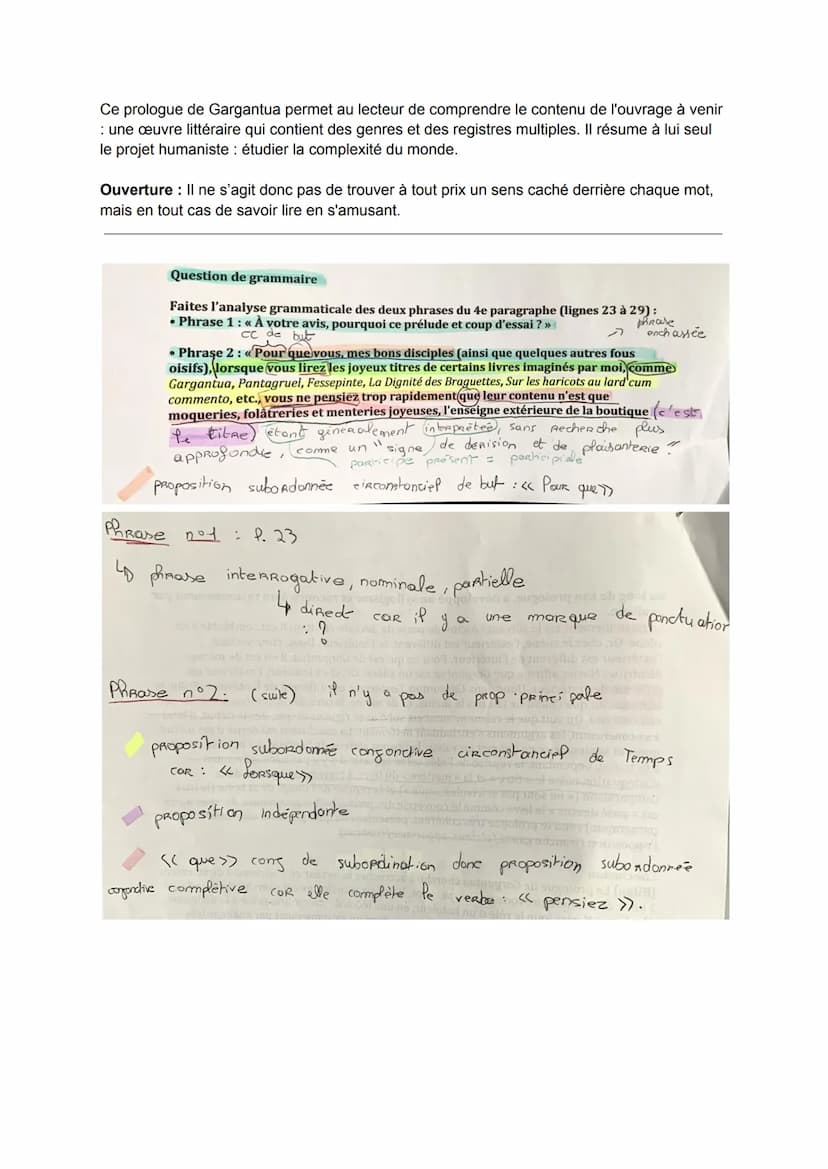 Ce prologue de Gargantua permet au lecteur de comprendre le contenu de l'ouvrage à venir
: une œuvre littéraire qui contient des genres et des registres multiples. Il résume à lui seul
le projet humaniste : étudier la complexité du monde.
Ouverture : Il ne s'agit donc pas de trouver à tout prix un sens caché derrière chaque mot,
mais en tout cas de savoir lire en s'amusant.
Question de grammaire
Faites l'analyse grammaticale des deux phrases du 4e paragraphe (lignes 23 à 29) :
• Phrase 1 : « À votre avis, pourquoi ce prélude et coup d'essai ? »
phrase
enchassée
CC de but
• Phrase 2 : « Pour que vous, mes bons disciples (ainsi que quelques autres fous
oisifs), lorsque vous lirez les joyeux titres de certains livres imaginés par moi, comme
Gargantua, Pantagruel, Fessepinte, La Dignité des Braguettes, Sur les haricots au lard cum
commento, etc., vous ne pensiez trop rapidement que leur contenu n'est que
moqueries, folâtreries et menteries joyeuses, l'enseigne extérieure de la boutique (c'est
le titre) étant généralement interprétée, sans recherche plus
approfondie, comme un "signe de derision et de plaisanterie"
participe présent = participiale
proposition subordonnée circonstanciel de but : « Pour que »
Phrase n°1 : l. 23
↳ phrase interrogative, nominale, partielle
↳ direct car il y a une marque de ponctuation
: ?
Phrase n°2. (suite) il n'y a pas de prop. principale
proposition subordonnée conjonctive circonstanciel de Temps
car : « lorsque »
proposition indépendante
« que » conj de subordination donc proposition subordonnée
conjonctive complétive car elle complète le verbe : « pensiez ».